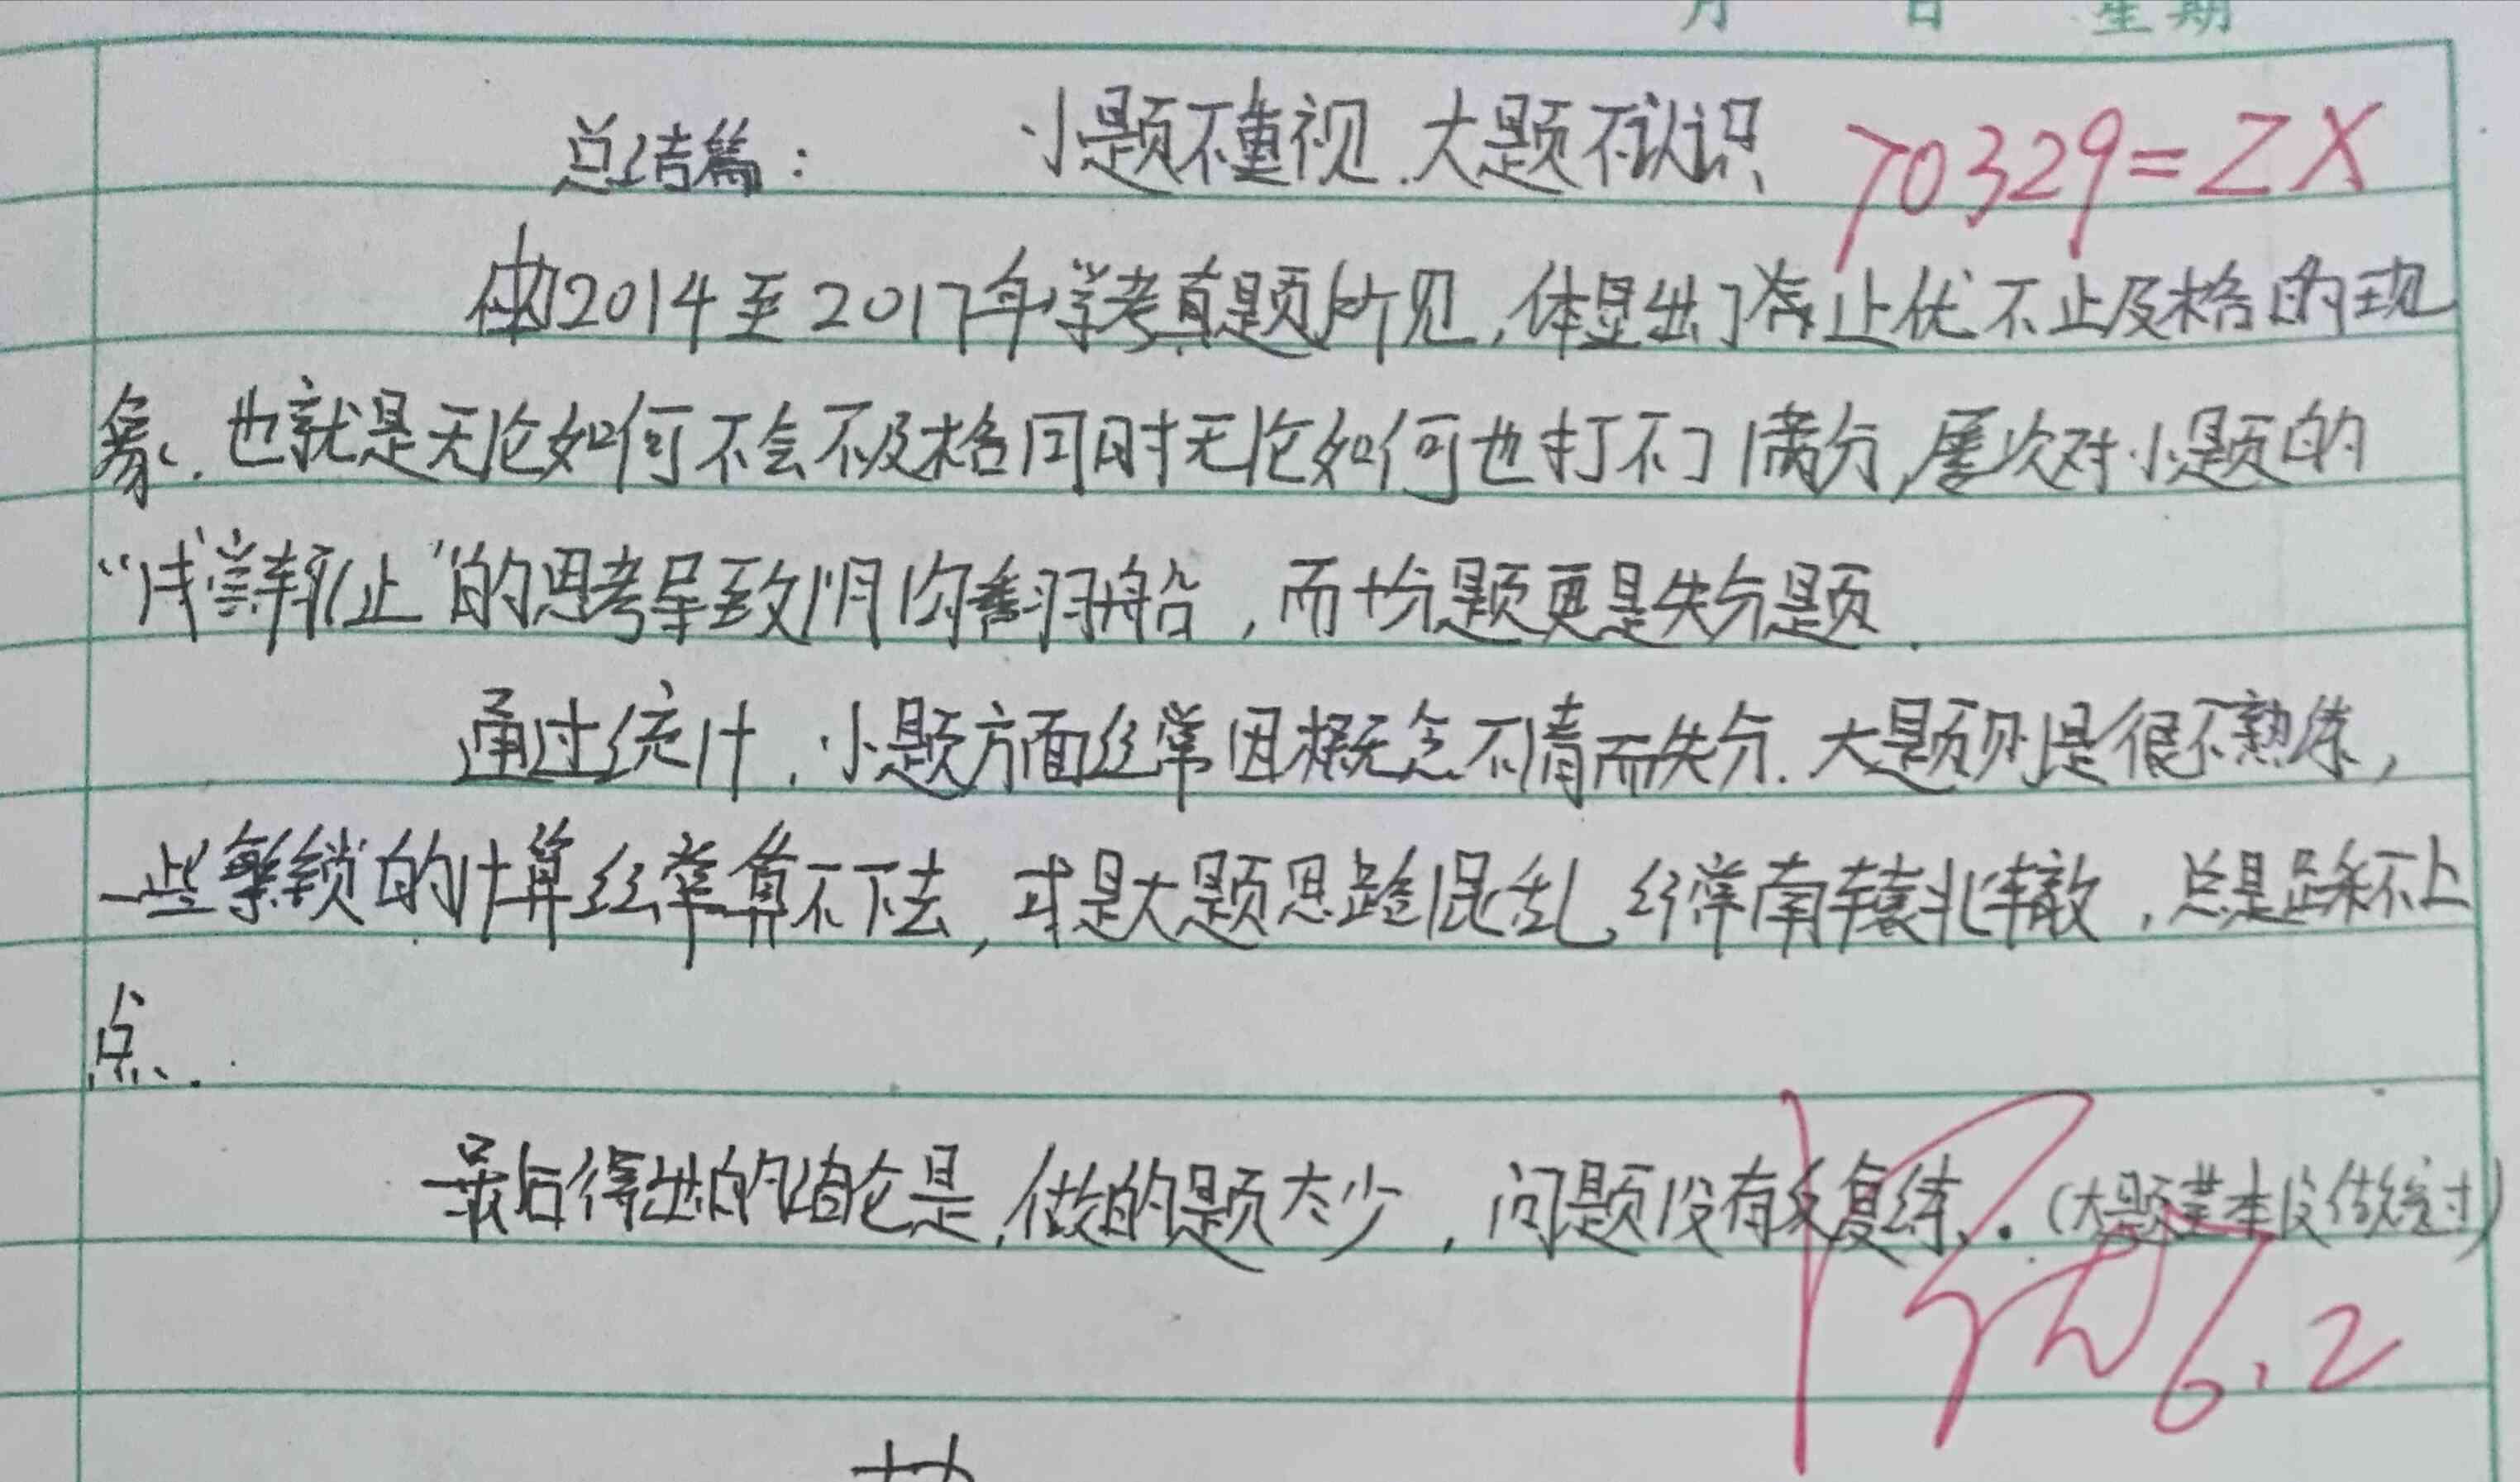 月 日 星期
总结篇: 小题不重视.大题不认识 70329=ZX
2014至2017年学考真题所见,体显出了 止优不止及格的现
象.也就是无论如何不会不及格同时无论如何也打不了满分,屡次对小题的
“浅尝辄止”的思考导致阴沟翻船,而十分题更是失分题.
通过统计,小题方面经常因概念不清而失分.大题则是很不熟练,
一些繁锁的计算经常算不下去,或是大题思路混乱,经常南辕北辙,总是踩不上
点.
最后得出的结论是,做的题太少,问题没有反复练.(大题基本没做完过)
6.2